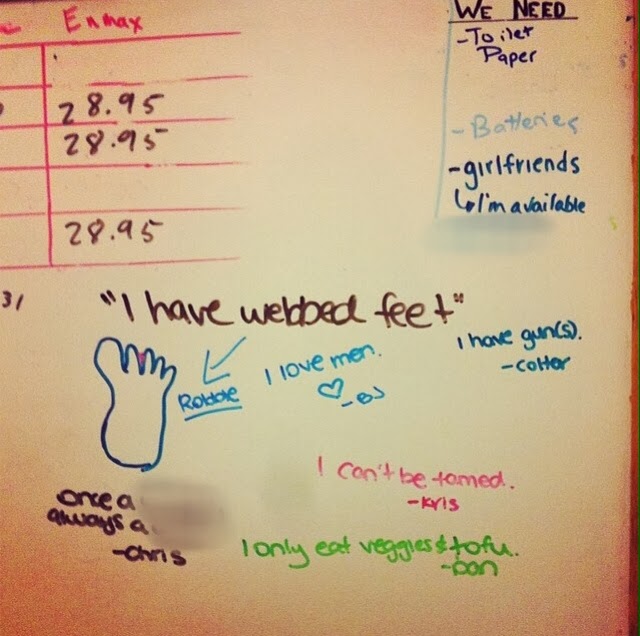 Enmax
28.95
28.95
28.95
31
WE NEED
-Toilet
Paper
-Batteries
-girlfriends
↳I'm available
"I have webbed feet"
Robbie
I love men.
♡-BJ
I have gun(s).
-colter
I can't be tamed.
-Kris
once a
always a
-Chris
I only eat veggies & tofu.
-Dan